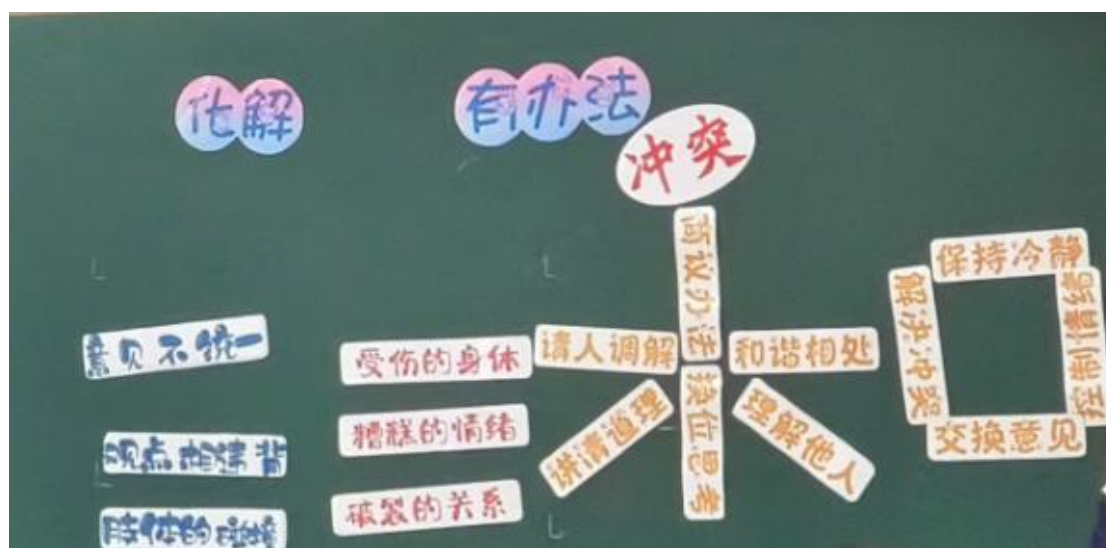 化解
有办法
冲突
意见不统一
观点相违背
肢体的碰撞
受伤的身体
糟糕的情绪
破裂的关系
商议办法
请人调解
和谐相处
讲清道理
换位思考
理解他人
保持冷静
解决冲突
交换意见